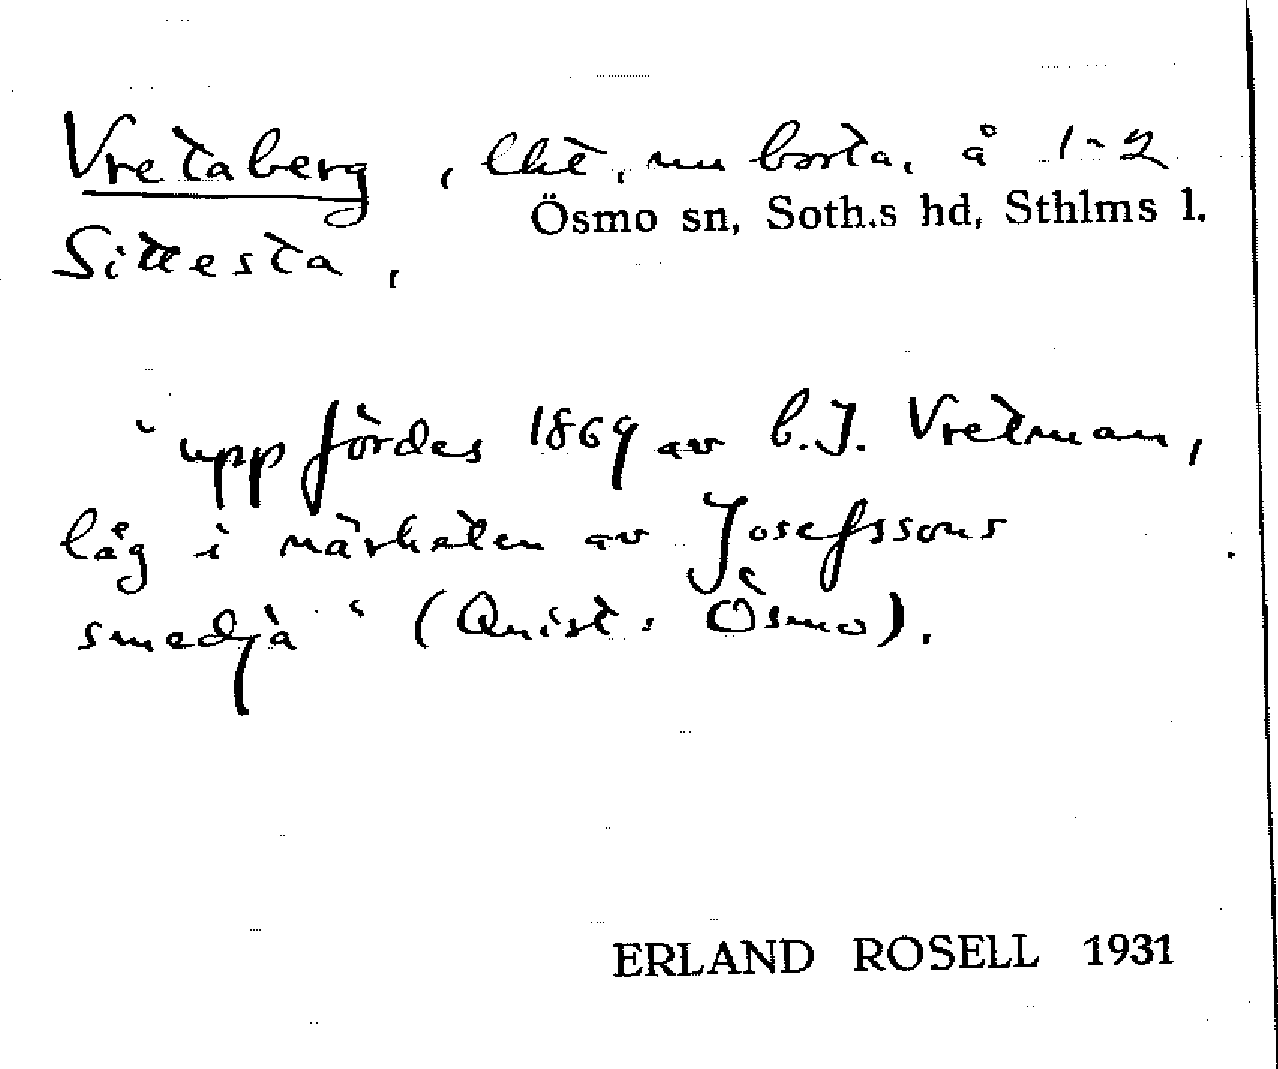 Vretaberg, lht, nu borta, å 1-2
Ösmo sn, Soth.s hd, Sthlms l.
Sittesta,
"uppfördes 1869 av C.J. Vretman,
låg i närheten av Josefssons
smedja" (Quist: Ösmo).
ERLAND ROSELL 1931